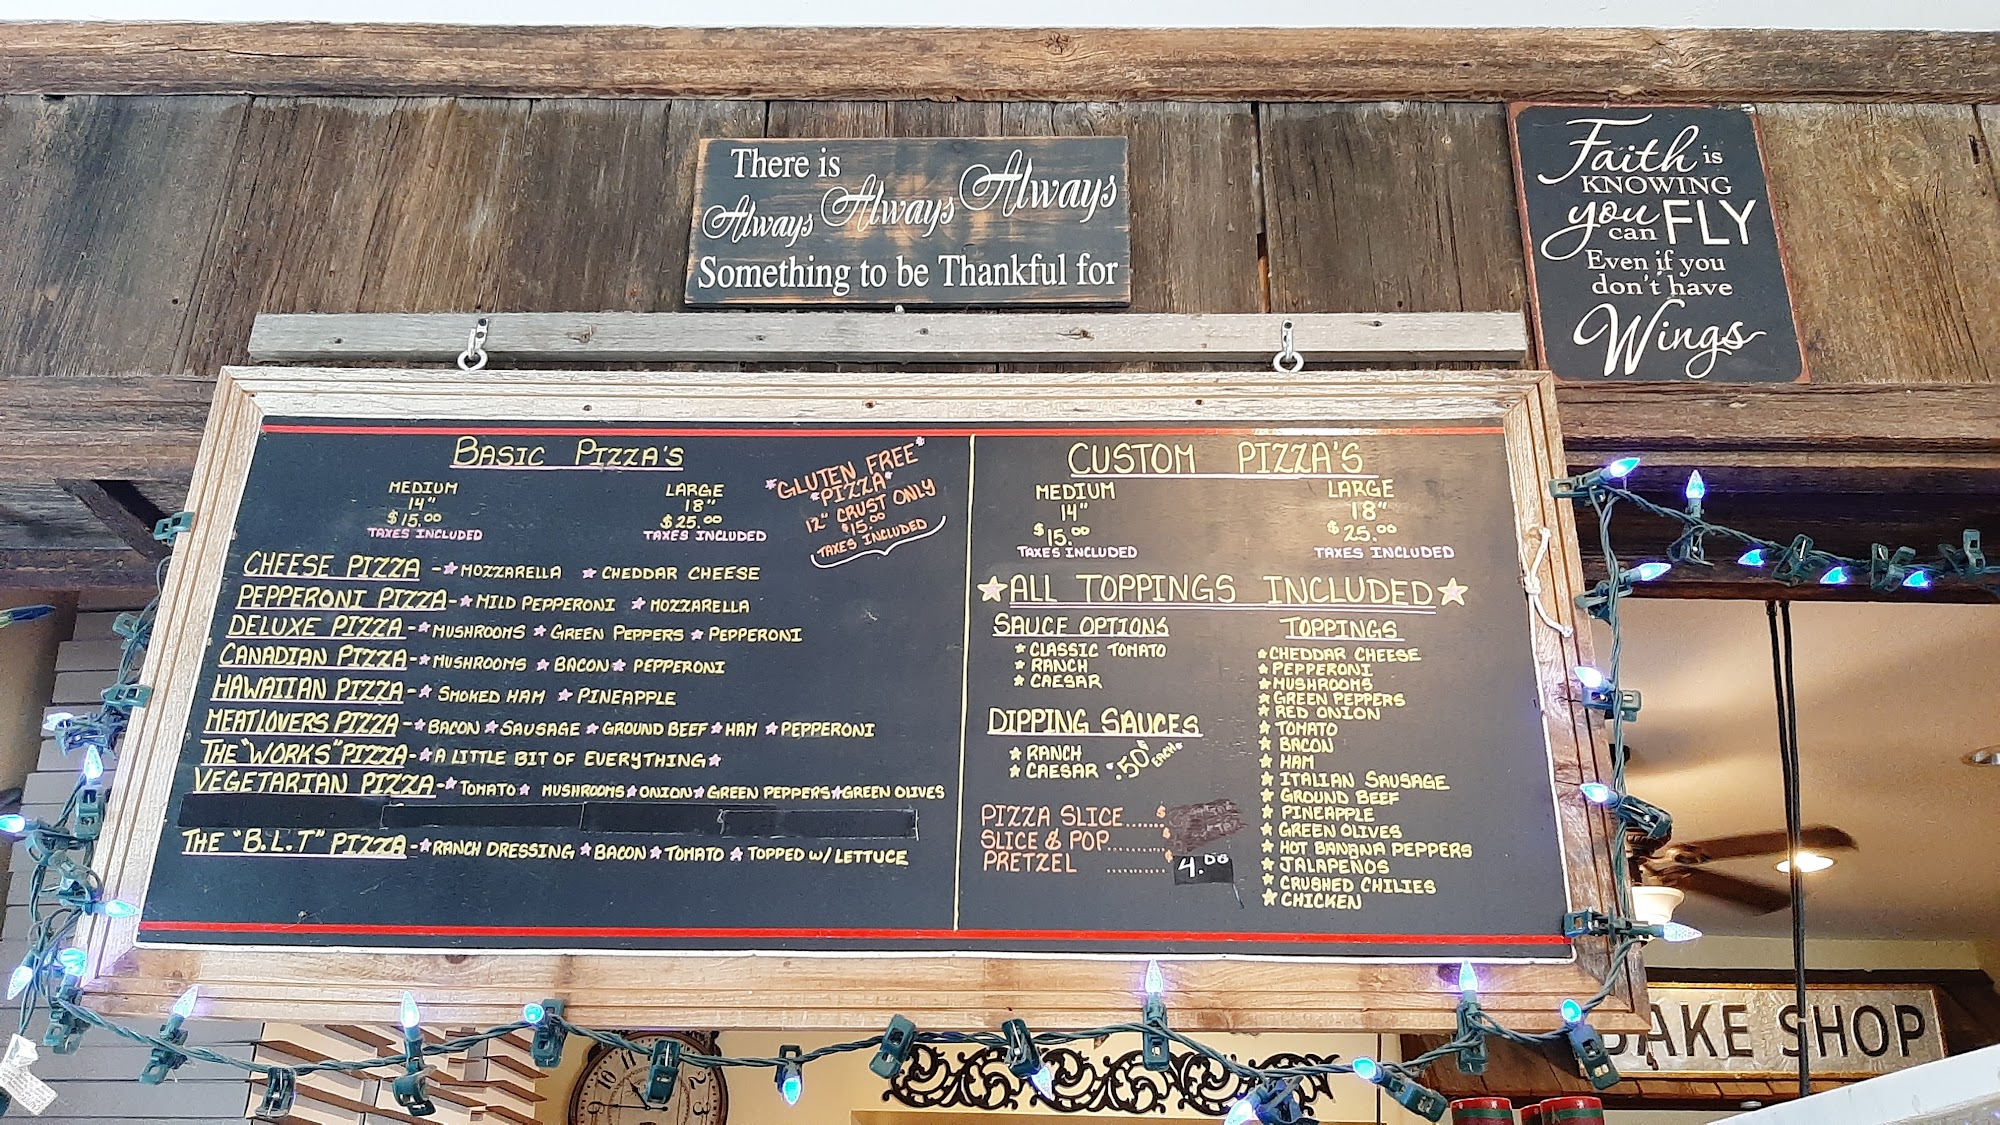 There is
Always Always Always
Something to be Thankful for
Faith is
KNOWING
you can FLY
Even if you
don't have
Wings
BASIC PIZZA'S
MEDIUM
14"
$15.00
TAXES INCLUDED
LARGE
18"
$25.00
TAXES INCLUDED
*GLUTEN FREE*
*PIZZA*
12" CRUST ONLY
$15.00
TAXES INCLUDED
CHEESE PIZZA - ★MOZZARELLA ★CHEDDAR CHEESE
PEPPERONI PIZZA- ★MILD PEPPERONI ★MOZZARELLA
DELUXE PIZZA- ★MUSHROOMS ★GREEN PEPPERS ★PEPPERONI
CANADIAN PIZZA- ★MUSHROOMS ★BACON ★PEPPERONI
HAWAIIAN PIZZA- ★SMOKED HAM ★PINEAPPLE
MEATLOVERS PIZZA- ★BACON ★SAUSAGE ★GROUND BEEF ★HAM ★PEPPERONI
THE "WORKS" PIZZA- ★A LITTLE BIT OF EVERYTHING★
VEGETARIAN PIZZA- ★TOMATO★ MUSHROOMS★ONION★GREEN PEPPERS★GREEN OLIVES
THE "B.L.T" PIZZA- ★RANCH DRESSING ★BACON★TOMATO ★TOPPED W/ LETTUCE
CUSTOM PIZZA'S
MEDIUM
14"
$15.00
TAXES INCLUDED
LARGE
18"
$25.00
TAXES INCLUDED
★ALL TOPPINGS INCLUDED★
SAUCE OPTIONS
★CLASSIC TOMATO
★RANCH
★CAESAR
DIPPING SAUCES
★RANCH
★CAESAR
*.50¢ EACH*
PIZZA SLICE.......$
SLICE & POP..........$
PRETZEL ..........$ 4.00
TOPPINGS
★CHEDDAR CHEESE
★PEPPERONI
★MUSHROOMS
★GREEN PEPPERS
★RED ONION
★TOMATO
★BACON
★HAM
★ITALIAN SAUSAGE
★GROUND BEEF
★PINEAPPLE
★GREEN OLIVES
★HOT BANANA PEPPERS
★JALAPEÑOS
★CRUSHED CHILIES
★CHICKEN
BAKE SHOP
10 11 1 2 3 9